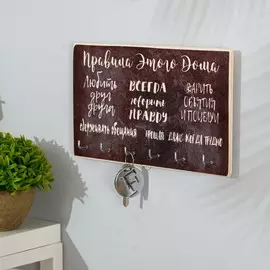 Правила Этого Дома
Любить ВСЕГДА ДАРИТЬ
друг говорить ОБЪЯТИЯ
друга ПРАВДУ И ПОЦЕЛУИ
сдерживать обещания прощать даже когда трудно